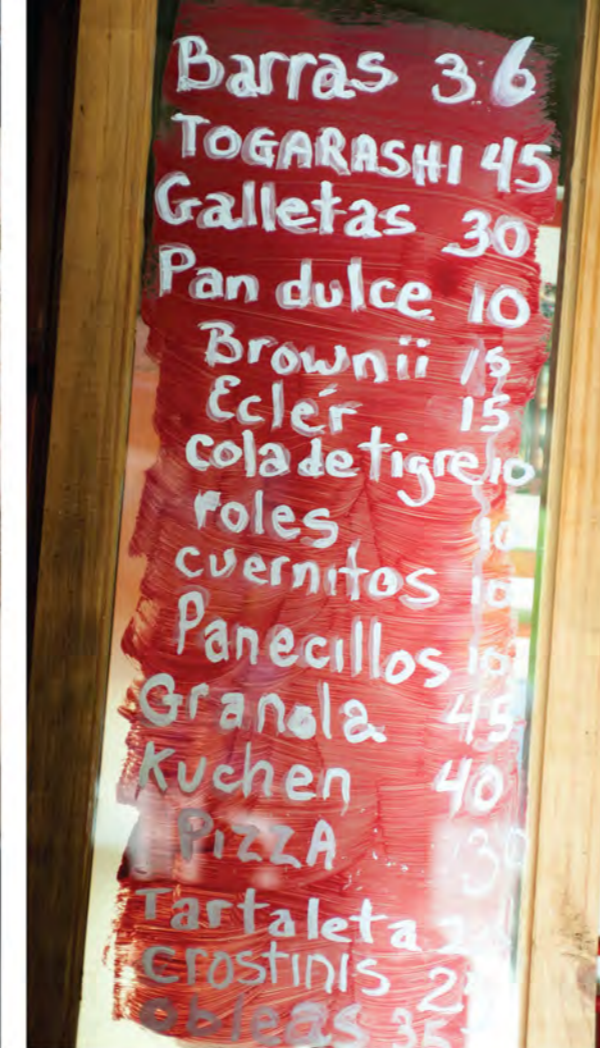 Barras 36
TOGARASHI 45
Galletas 30
Pan dulce 10
Brownii 15
Eclér 15
cola de tigre 10
roles 10
cuernitos 10
Panecillos 10
Granola 45
Kuchen 40
PIZZA 30
Tartaleta
crostinis
obleas 35